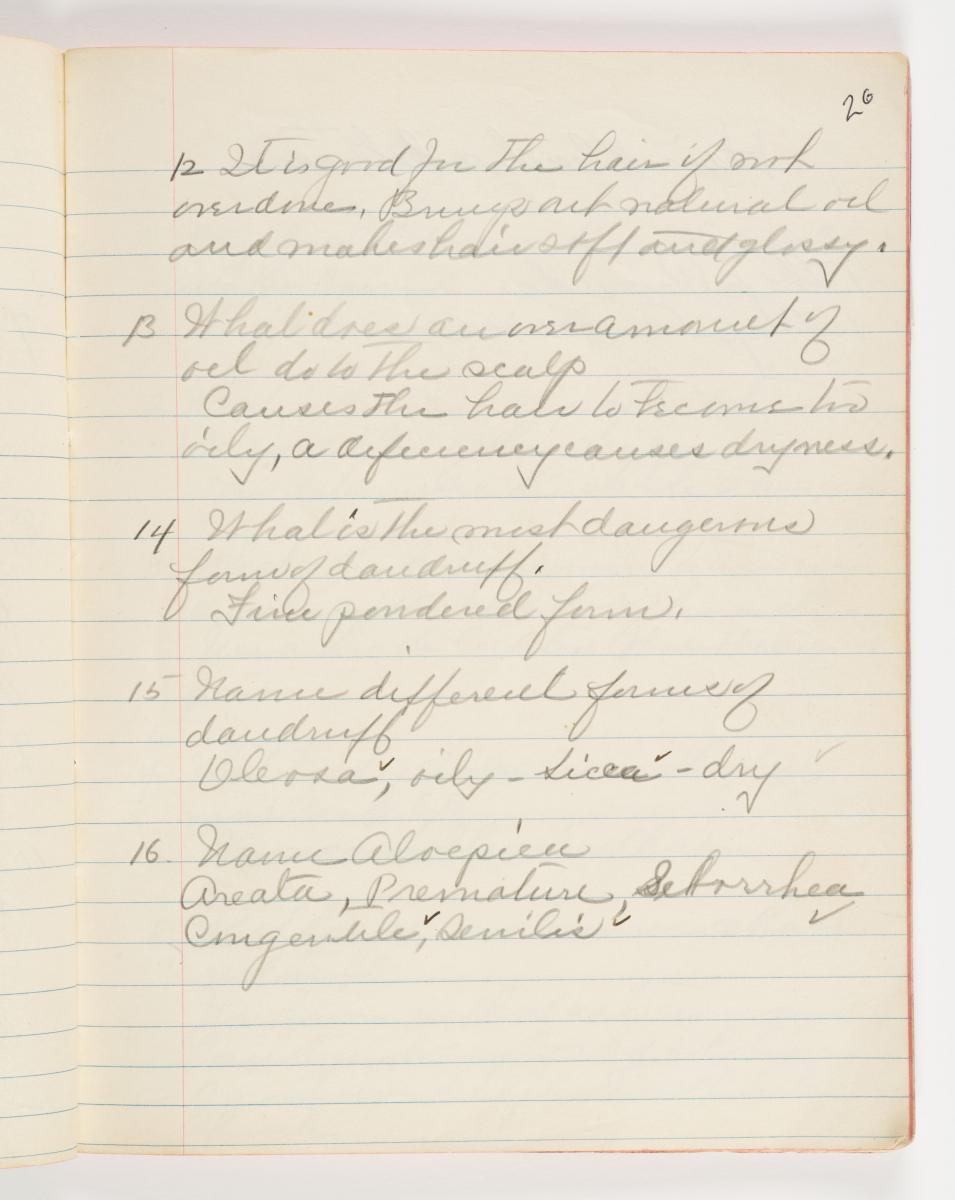 26
12 It is good for the hair if not
overdone, Brings out natural oil
and makes hair soft and glossy.
13 What does an over amount of
oil do to the scalp
Causes the hair to become too
oily, a deficiency causes dryness.
14 What is the most dangerous
form of dandruff.
Fine powdered form.
15 Name different forms of
dandruff
Oleosa, oily - Sicca - dry
16. Name Aloepica
Areata, Premature, Seborrhea
Senilis